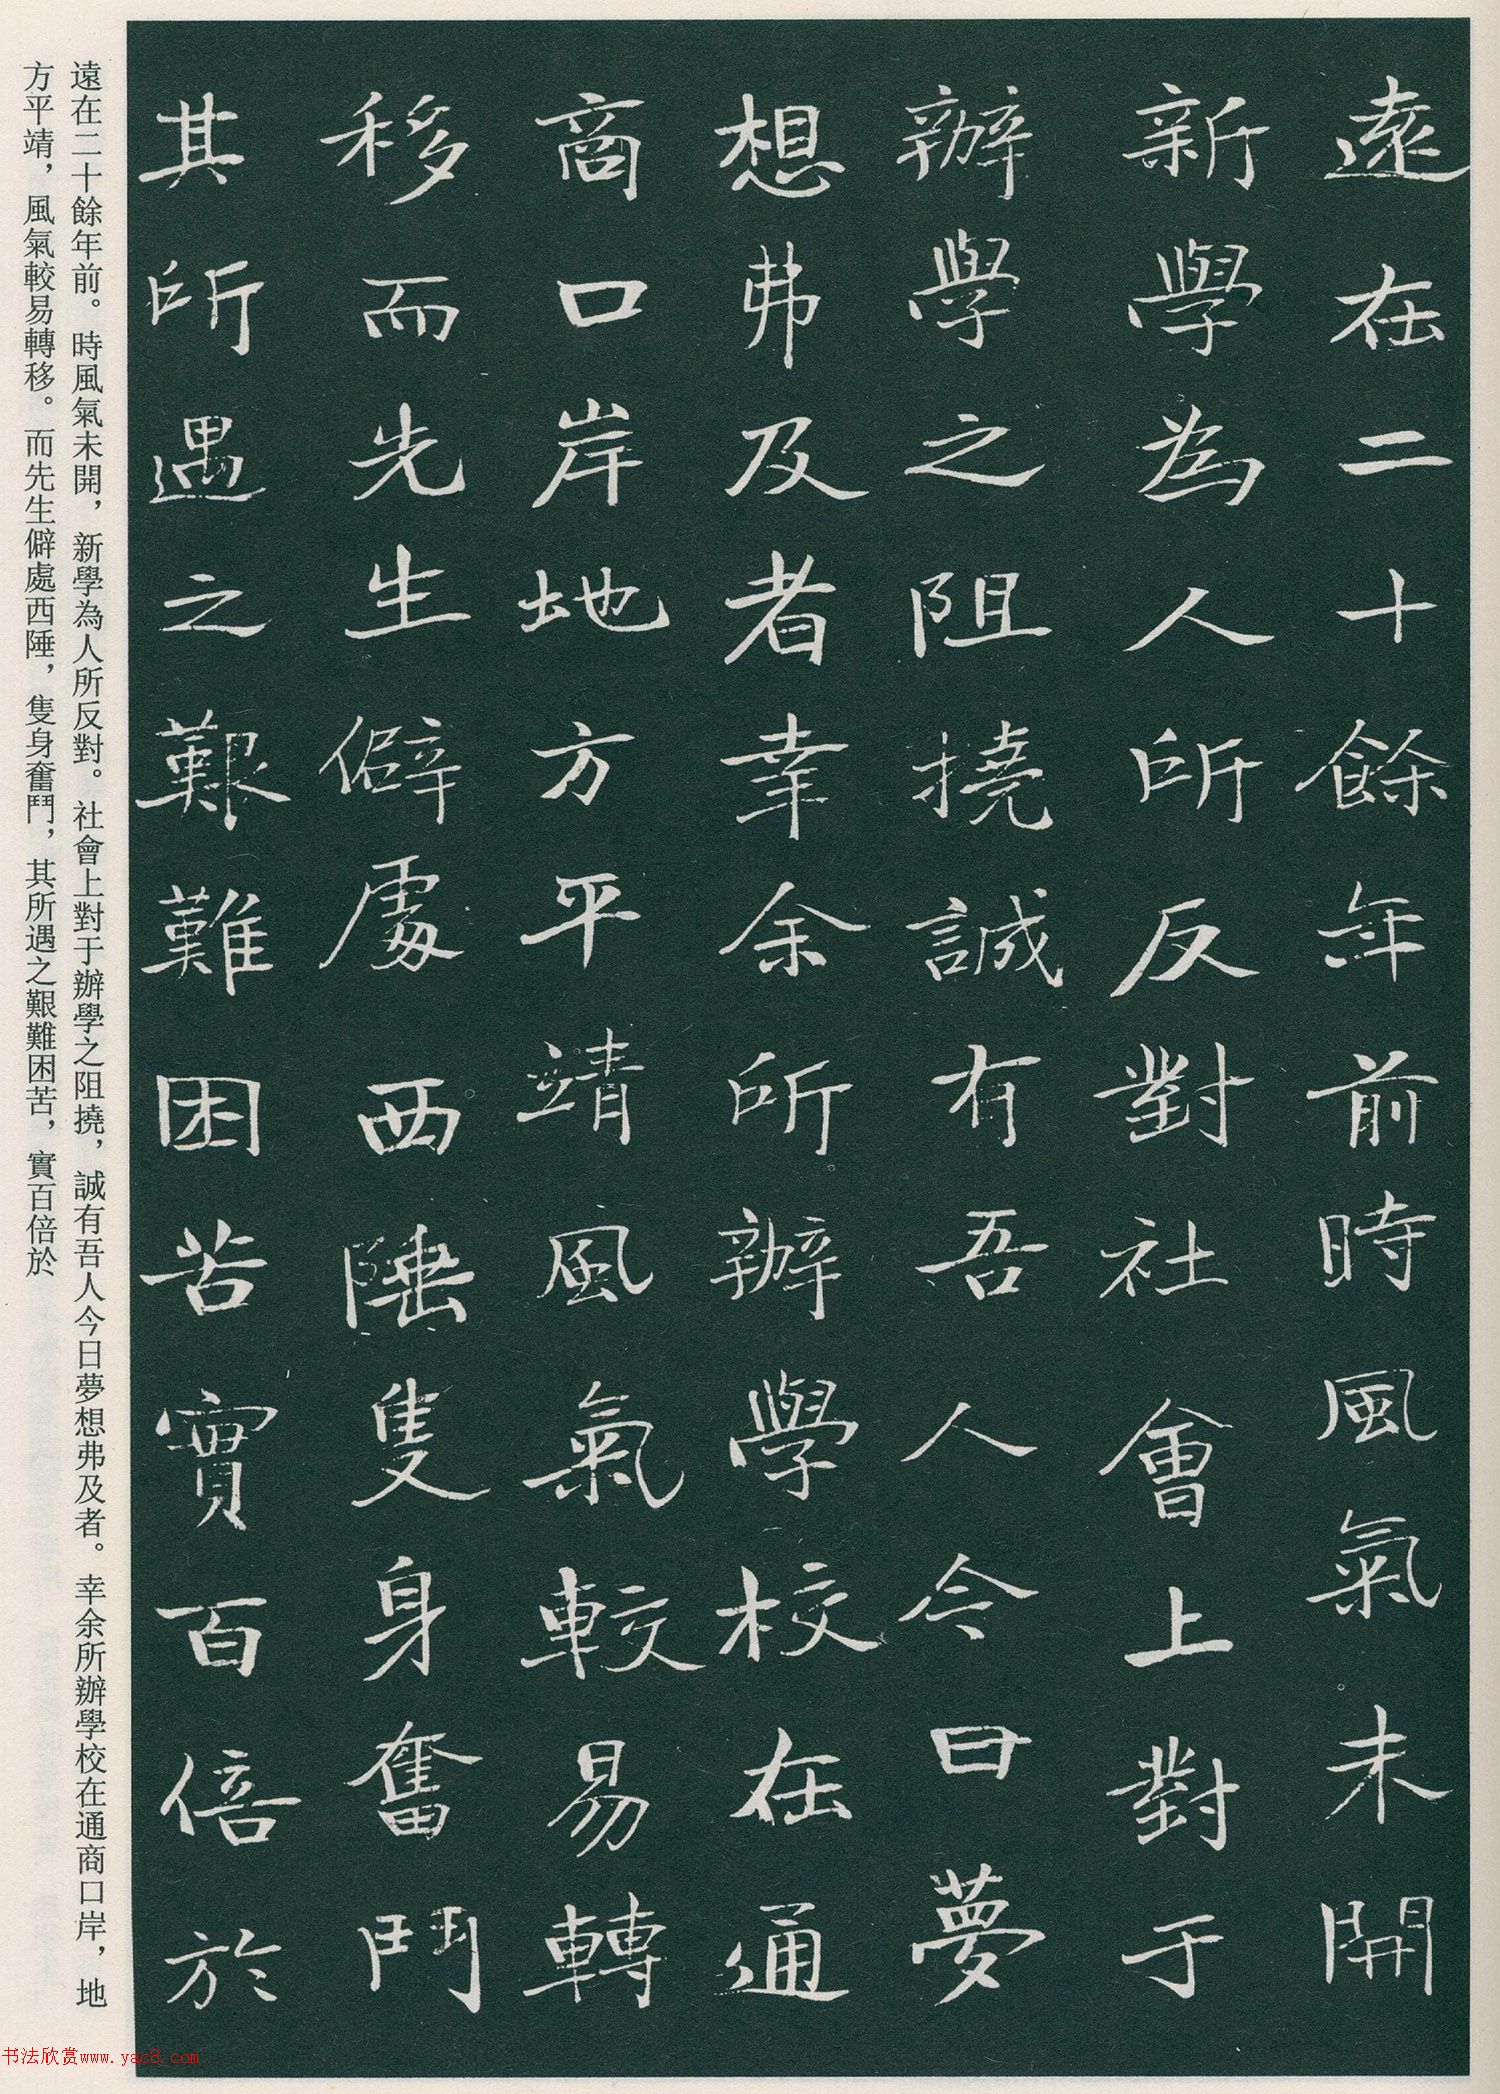 遠在二十餘年前時風氣未開
新學為人所反對社會上對于
辦學之阻撓誠有吾人今日夢
想弗及者幸余所辦學校在通
商口岸地方平靖風氣較易轉
移而先生僻處西陲隻身奮鬥
其所遇之艱難困苦實百倍於
遠在二十餘年前。時風氣未開，新學為人所反對。社會上對于辦學之阻撓，誠有吾人今日夢想弗及者。幸余所辦學校在通商口岸，地
方平靖，風氣較易轉移。而先生僻處西陲，隻身奮鬥，其所遇之艱難困苦，實百倍於
书法欣赏www.yac8.com